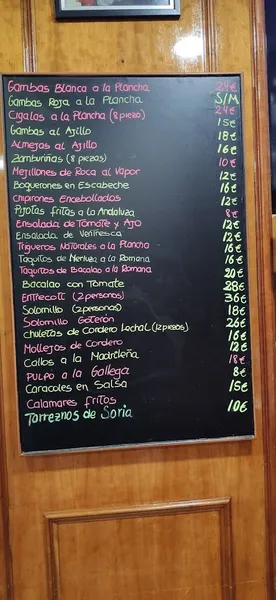 Gambas Blanca a la Plancha 24€
Gambas Roja a la Plancha S/M
Cigalas a la Plancha (8 piezas) 24€
Gambas al Ajillo 15€
Almejas al Ajillo 18€
Zamburiñas (8 piezas) 16€
Mejillones de Roca al Vapor 10€
Boquerones en Escabeche 12€
Chipirones Encebollados 16€
Pijotas fritas a la Andaluza 12€
Ensalada de Tomate y Ajo 8€
Ensalada de Ventresca 12€
Trigueros Naturales a la Plancha 12€
Taquitos de Merluza a la Romana 16€
Taquitos de Bacalao a la Romana 16€
Bacalao con Tomate 20€
Entrecott (2 personas) 28€
Solomillo (2 personas) 36€
Solomillo 18€
Chuletas de Cordero Lechal (12 piezas) 26€
Mollejas de Cordero 16€
Callos a la Madrileña 12€
Pulpo a la Gallega 18€
Caracoles en Salsa 8€
Calamares fritos 15€
Torreznos de Soria 10€